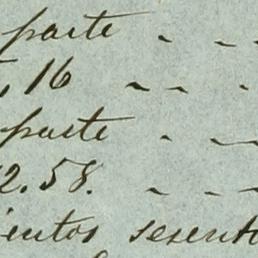 parte
, 16
parte
2.58.
ientos sesent